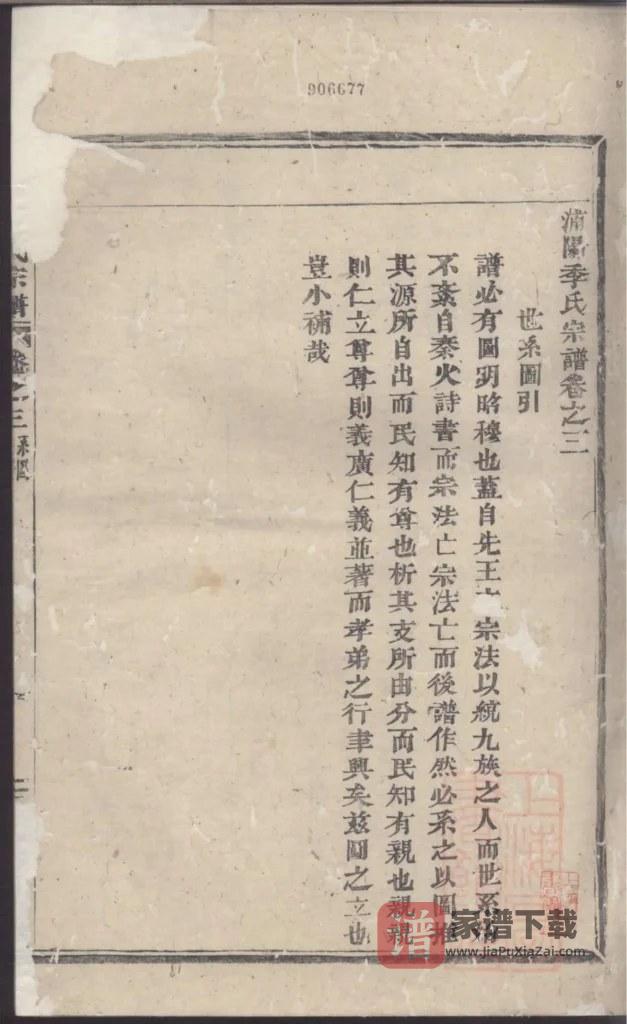 906677
浦陽季氏宗譜卷之三
世系圖引
譜必有圖明昭穆也蓋自先王 宗法以統九族之人而世系
不紊自秦火詩書而宗法亡宗法亡而後譜作然必系之以圖推
其源所自出而民知有尊也析其支所由分而民知有親也親親
則仁立尊尊則義廣仁義並著而孝弟之行聿興矣茲圖之立也
豈小補哉
氏宗譜 卷之三
譜
家谱下载
www.JiaPuXiaZai.com